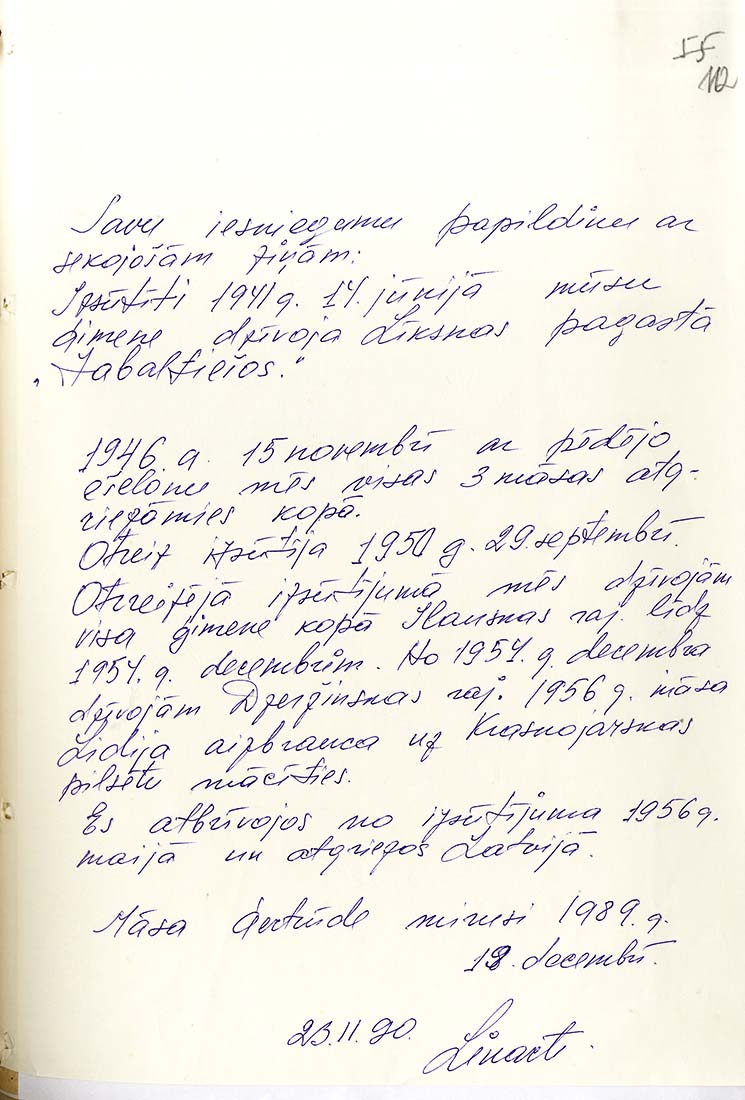 55
112
Savu iesniegumu papildinu ar
sekojošām ziņām:
Izsūtīti 1941 g. 14. jūnijā mūsu
ģimene dzīvoja Līksnas pagastā
"Jabaltiešos."
1946. g. 15 novembrī ar pēdējo
ešelonu mēs visas 3 māsas atg-
riezāmies kopā.
Otreiz izsūtīja 1950 g. 29. septembrī.
Otrreizējā izsūtījumā mēs dzīvojām
visa ģimene kopā Ilanskas raj. līdz
1954. g. decembrim. No 1954. g. decembra
dzīvojām Dzeržinskas raj. 1956 g. māsa
Lidija aizbrauca uz Krasnojarskas
pilsētu mācīties.
Es atbrīvojos no izsūtījuma 1956 g.
maijā un atgriezos Latvijā.
Māsa Ģertrūde mirusi 1989. g.
18. decembrī.
23.11.90.